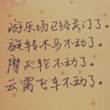 游乐场已经关门了.
旋转木马不动了.
摩天轮不动了.
云霄飞车不动了.